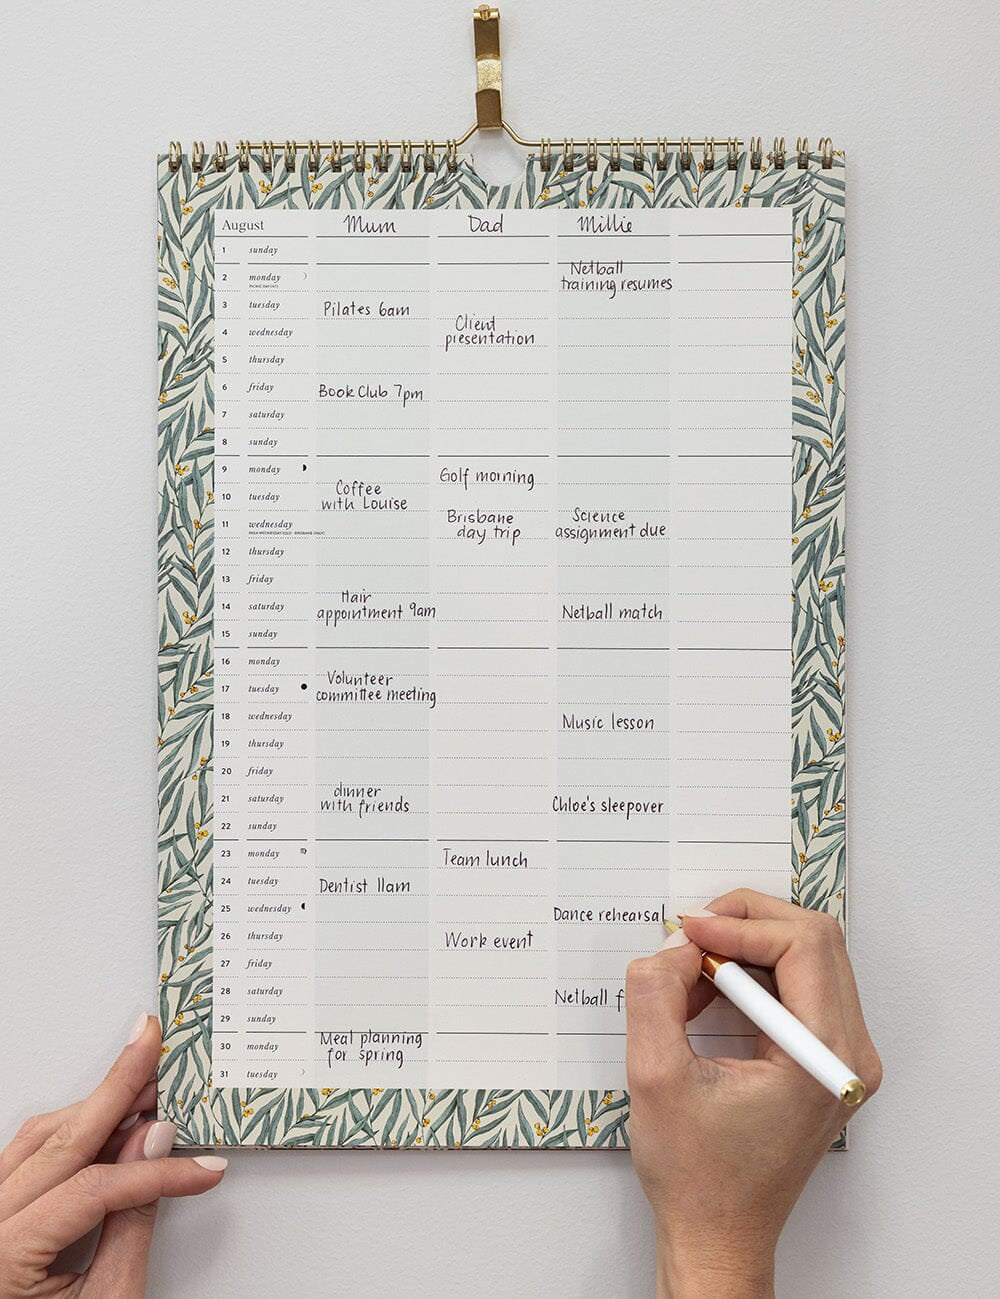 August Mum Dad Millie
1 sunday
Netball
2 monday training resumes
PICNIC DAY (NT)
3 tuesday Pilates 6am
Client
4 wednesday presentation
5 thursday
6 friday Book Club 7pm
7 saturday
8 sunday
9 monday Golf morning
Coffee
10 tuesday with Louise
Brisbane Science
11 wednesday day trip assignment due
EKKA WEDNESDAY (QLD - BRISBANE ONLY)
12 thursday
13 friday
Hair
14 saturday appointment 9am Netball match
15 sunday
16 monday
Volunteer
17 tuesday committee meeting
18 wednesday Music lesson
19 thursday
20 friday
dinner
21 saturday with friends Chloe's sleepover
22 sunday
23 monday Team lunch
24 tuesday Dentist 11am
25 wednesday Dance rehearsal
26 thursday Work event
27 friday
28 saturday Netball f
29 sunday
Meal planning
30 monday for spring
31 tuesday